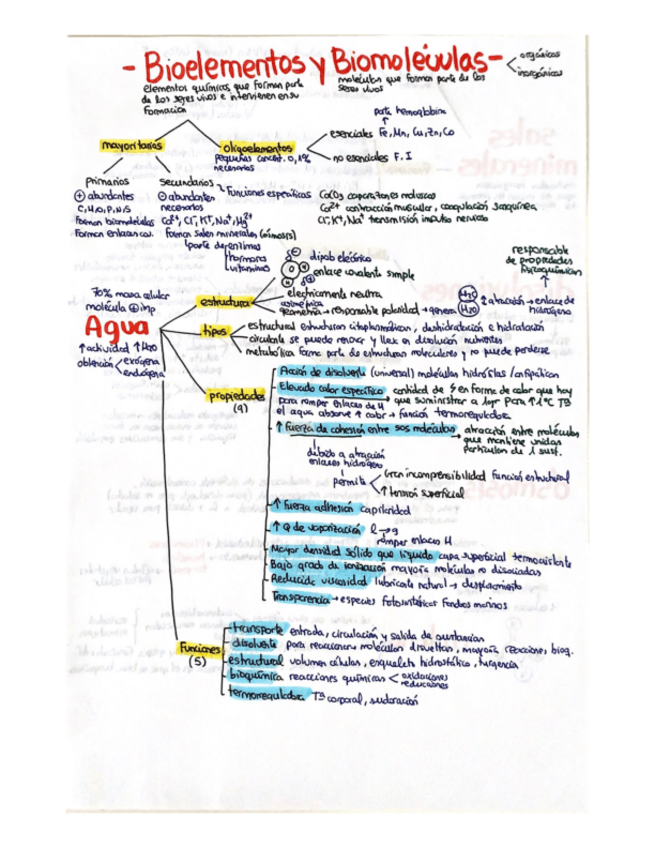 - Bioelementos y Biomoléculas -
orgánicas
inorgánicas
elementos químicos que forman parte
de los seres vivos e intervienen en su
formación
moléculas que forman parte de los
seres vivos
mayoritarios
oligoelementos
pequeñas concent. 0,1%
necesarios
parte hemoglobina
esenciales Fe, Mn, Cu, Zn, Co
no esenciales F, I
primarios
⊕ abundantes
C, H, O, P, N, S
forman biomoléculas
Forman enlaces cov.
secundarios
⊖ abundantes
necesarios
Ca²⁺, Cl⁻, K⁺, Na⁺, Mg²⁺
forman sales minerales (osmosis)
parte de enzimas
hormonas
vitaminas
Funciones específicas
CaCO₃ caparazones moluscos
Ca²⁺ contracción muscular, coagulación sanguínea
Cl⁻, K⁺, Na⁺ transmisión impulso nervioso
responsable
de propiedades
fisicoquímicas
70% masa celular
molécula ⊕ imp
Agua
↑ actividad ↑ H₂O
obtención
exógena
endógena
estructura
dipolo eléctrico
enlace covalente simple
electricamente neutra
geometría → responsable polaridad → genera
H₂O
H₂O
↑ atracción → enlace de
hidrógeno
tipos
estructural estructuran citoplasmáticas, deshidratación e hidratación
circulante se puede renovar y lleva en disolución nutrientes
metabólica forma parte de estructuras moleculares y no puede perderse
propiedades
(9)
Acción de disolvente (universal) moléculas hidrófilas / anfipáticas
Elevado calor específico cantidad de E en forma de calor que hay
que suministrar a 1gr para ↑ 1ºC Tª
para romper enlaces de H
el agua absorve ↑ calor → función termorreguladora
↑ fuerza de cohesión entre sus moléculas
atracción entre moléculas
que mantiene unidas
partículas de 1 sust.
debido a atracción
enlaces hidrógeno
permite
Gran incomprensibilidad función estructural
↑ tensión superficial
↑ fuerza adhesión capilaridad
↑ Q de vaporización l → g
romper enlaces H
Mayor densidad sólido que líquido capa superficial termoaislante
Bajo grado de ionización mayoría moléculas no disociadas
Reducida viscosidad lubricante natural → desplazamiento
Transparencia → especies fotosintéticas fondos marinos
Funciones
(5)
transporte entrada, circulación y salida de sustancias
disolvente para reaccionar moléculas disueltas, mayoría reacciones bioq.
estructural volumen células, esqueleto hidrostático, turgencia
bioquímica reacciones químicas
oxidaciones
reducciones
termorreguladora Tª corporal, sudoración